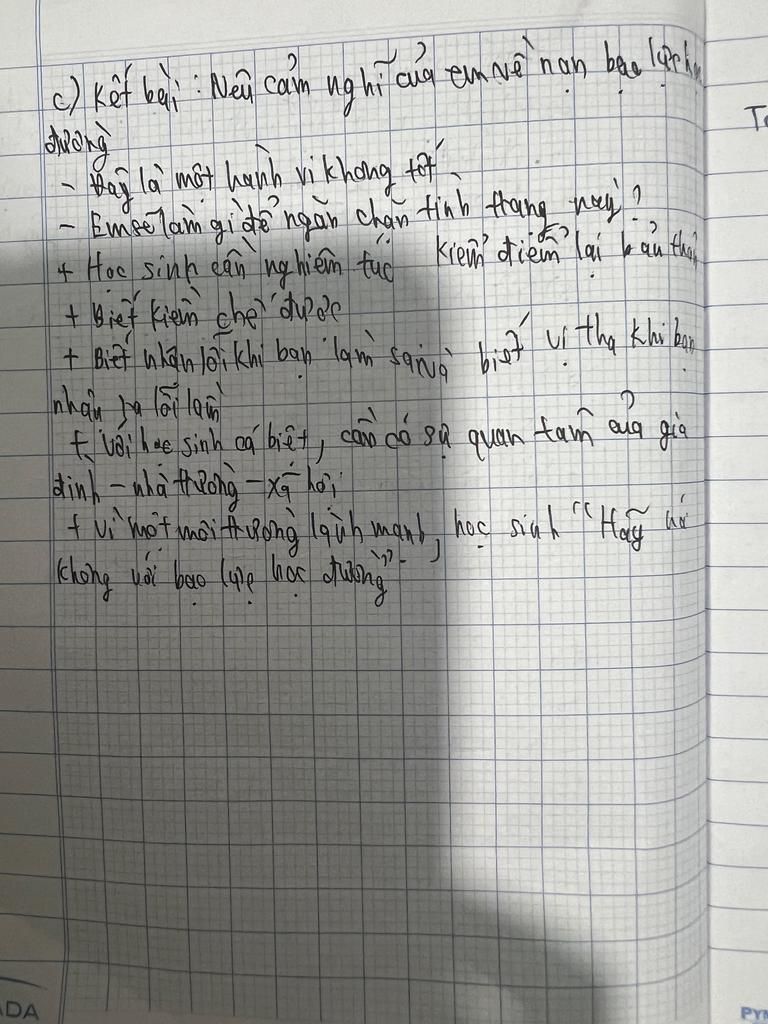 c) Kết bài: Nêu cảm nghĩ của em về nạn bạo lực
đường
- Đây là một hành vi không tốt
- Em sẽ làm gì để ngăn chặn tình trạng này?
+ Học sinh cần nghiêm túc kiểm điểm lại bản thân
+ Biết kiềm chế được
+ Biết nhận lỗi khi bạn làm sai và biết vị tha khi bạn
nhận ra lỗi lầm
+ Với học sinh cá biệt, cần có sự quan tâm của gia
đình - nhà trường - xã hội
+ Vì một môi trường lành mạnh, học sinh "Hãy
không với bạo lực học đường".
ADA